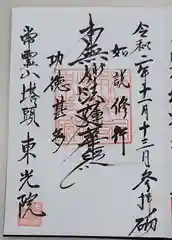 令和二年十一月十三日参拝砌
如説修行
南無妙法蓮華経
功徳甚多
常霊山塔頭 東光院